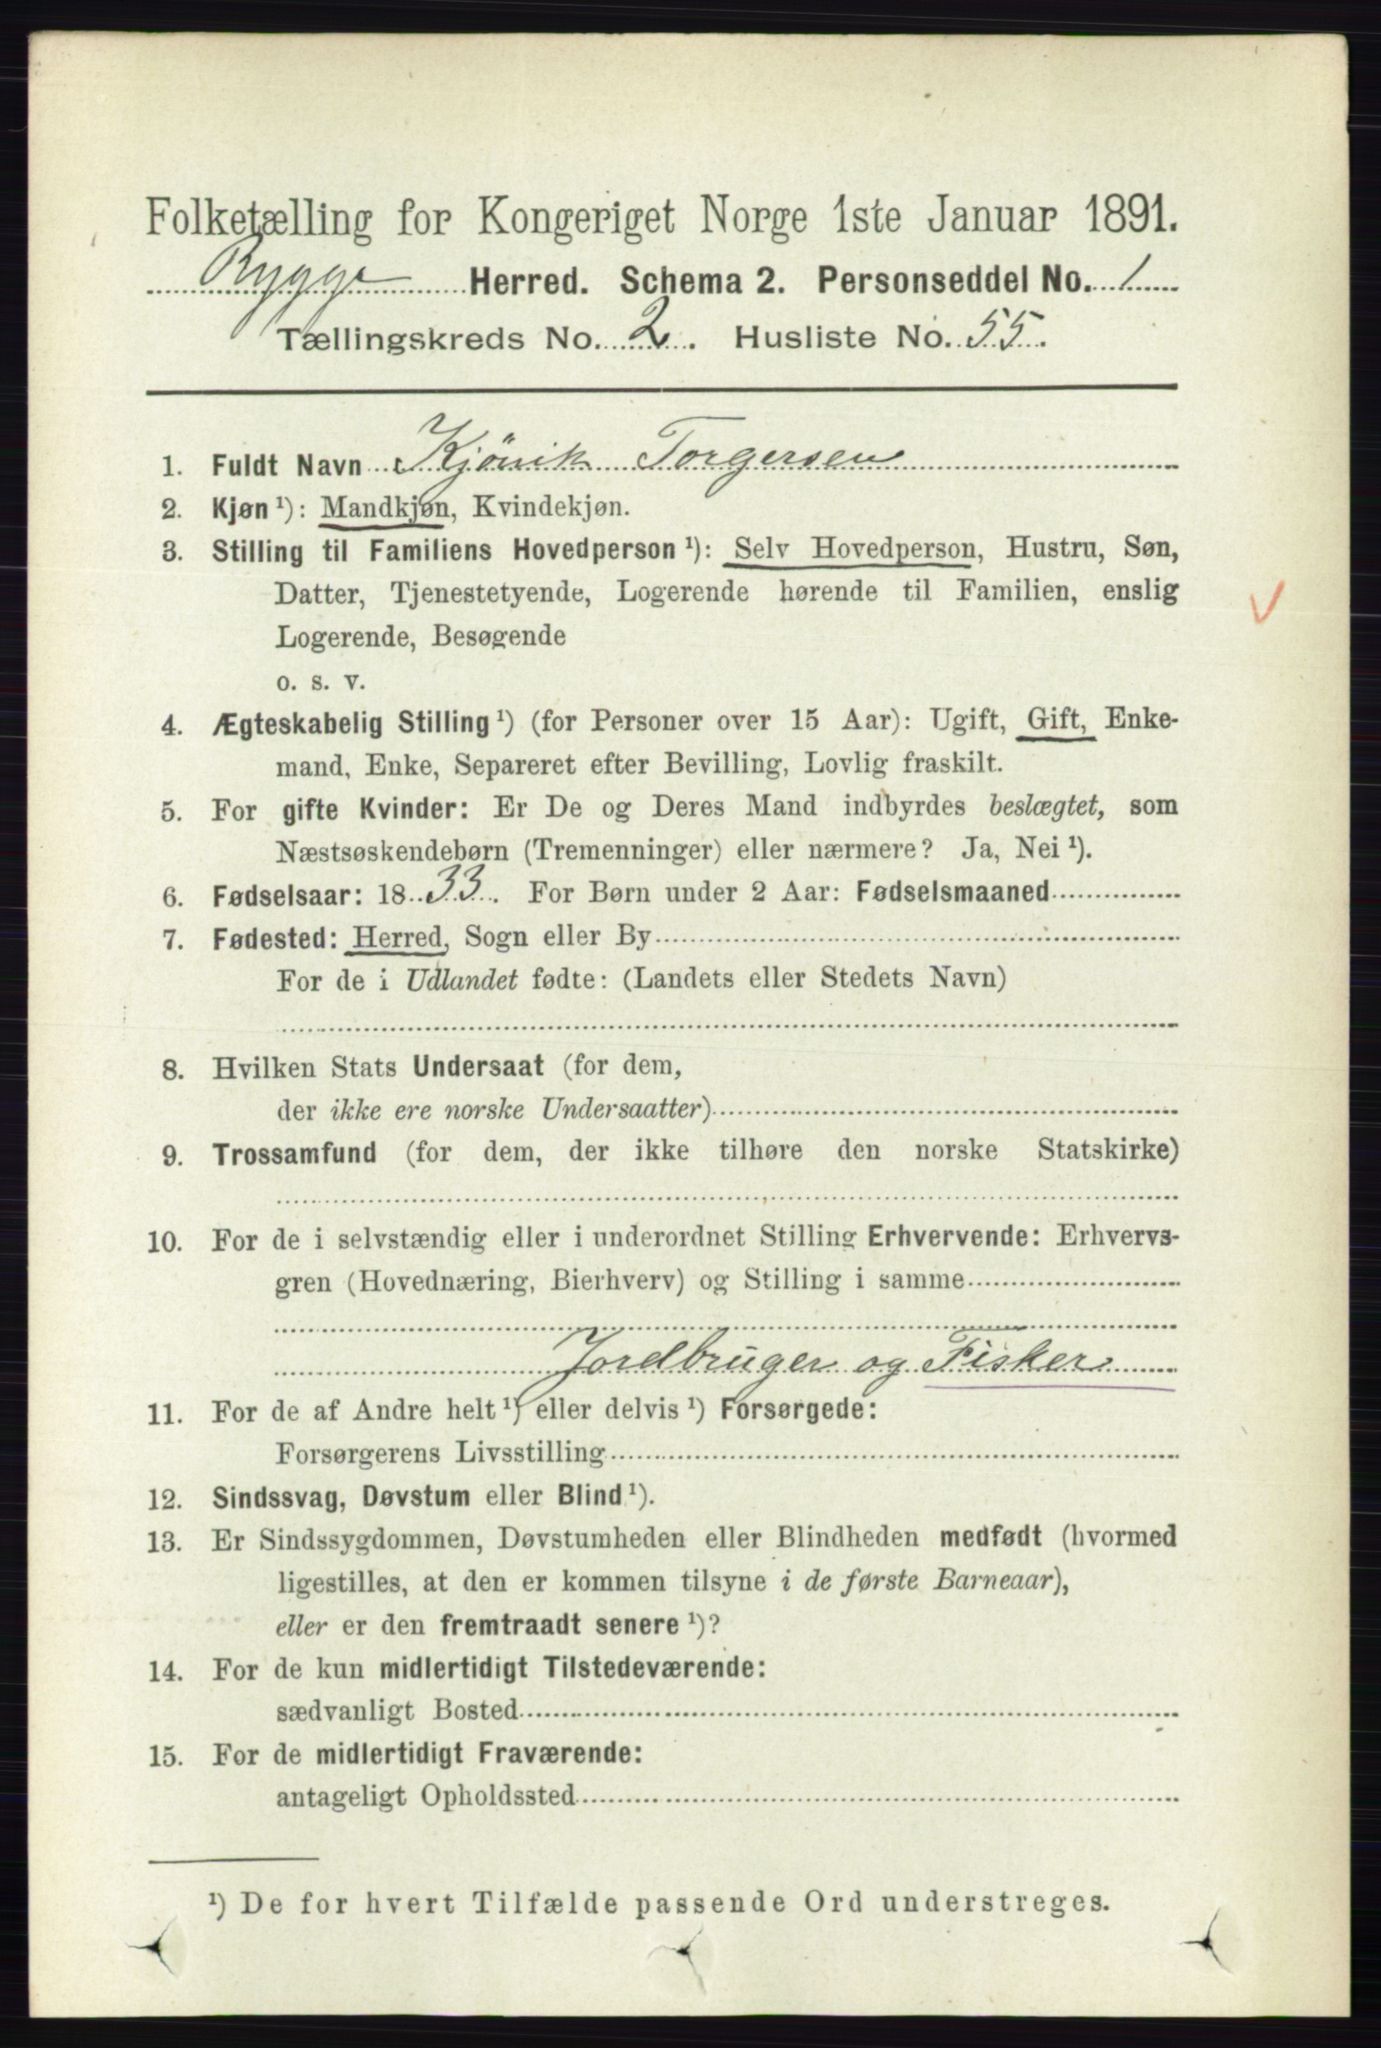 Folketælling for Kongeriget Norge 1ste Januar 1891.
Rygge Herred. Schema 2. Personseddel No. 1
Tællingskreds No. 2. Husliste No. 55.
1. Fuldt Navn Kjönik Torgersen
2. Kjøn¹): Mandkjøn, Kvindekjøn.
3. Stilling til Familiens Hovedperson¹): Selv Hovedperson, Hustru, Søn,
Datter, Tjenestetyende, Logerende hørende til Familien, enslig
Logerende, Besøgende
o. s. v.
4. Ægteskabelig Stilling¹) (for Personer over 15 Aar): Ugift, Gift, Enke-
mand, Enke, Separeret efter Bevilling, Lovlig fraskilt.
5. For gifte Kvinder: Er De og Deres Mand indbyrdes beslægtet, som
Næstsøskendebørn (Tremenninger) eller nærmere? Ja, Nei¹).
6. Fødselsaar: 1833. For Børn under 2 Aar: Fødselsmaaned
7. Fødested: Herred, Sogn eller By
For de i Udlandet fødte: (Landets eller Stedets Navn)
8. Hvilken Stats Undersaat (for dem,
der ikke ere norske Undersaatter)
9. Trossamfund (for dem, der ikke tilhøre den norske Statskirke)
10. For de i selvstændig eller i underordnet Stilling Erhvervende: Erhvervs-
gren (Hovednæring, Bierhverv) og Stilling i samme
Jordbruger og Fisker
11. For de af Andre helt¹) eller delvis¹) Forsørgede:
Forsørgerens Livsstilling
12. Sindssvag, Døvstum eller Blind¹).
13. Er Sindssygdommen, Døvstumheden eller Blindheden medfødt (hvormed
ligestilles, at den er kommen tilsyne i de første Barneaar),
eller er den fremtraadt senere¹)?
14. For de kun midlertidigt Tilstedeværende:
sædvanligt Bosted
15. For de midlertidigt Fraværende:
antageligt Opholdssted
¹) De for hvert Tilfælde passende Ord understreges.